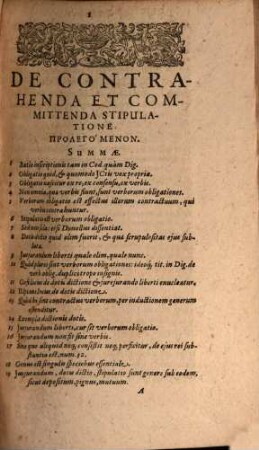 1
DE CONTRA-
HENDA ET COM-
MITTENDA STIPULA-
TIONE
ΠΡΟΛΕΓΟ΄ΜΕΝΟΝ.
SUMMÆ.
1 Ratio inscriptionis tam in Cod. quàm Dig.
2 Obligatio quid, & quomodo JCtis vox propria.
3 Obligatio nascitur ex re, ex consensu, ex verbis.
4 Non omnia, quæ verbis fiunt, sunt verborum obligationes.
5 Verborum obligatio est effectus illorum contractuum, qui
verbis contrahuntur.
6 Stipulatio est verborum obligatio.
7 Doctorum
8 Dotis dictio quid olim fuerit, & quæ scrupulositas ejus sub-
lata.
9 Jurandum liberti quale olim, quale nunc.
10 tit. in Dig. de
verb. oblig. duplici tropo insignis.
11 dotis dictione & jurejurando liberti
12 de dotis dictione
13 Quid sint contractus verborum, per inductionem generum
ostenditur.
14 Exempla dictionis dotis.
15 Jusjurandum liberti, cur sit verborum obligatio.
16 Jusjurandum non fit sine verbis.
17 Sine quo aliquid neq; consistit neq; perficitur, de ejus rei sub-
stantia est, num. 32.
18 Genus est singulis speciebus essentiale.
19 Jusjurandum, dotis dictio, stipulatio sunt genere sub eodem,
sicut depositum, pignus, mutuum.
A